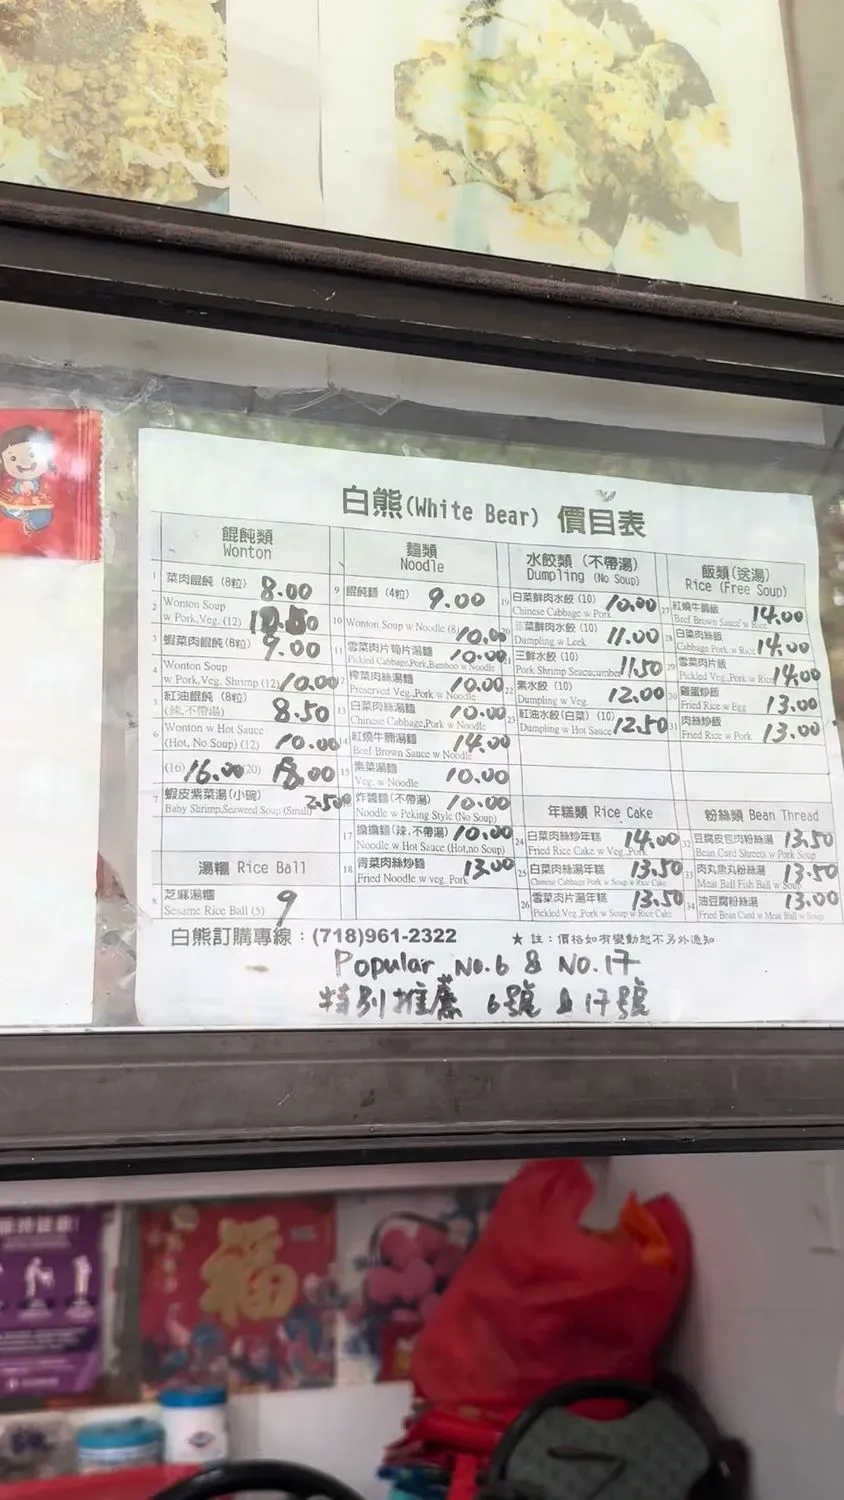 白熊(White Bear) 價目表
餛飩類
Wonton
1 菜肉餛飩 (8粒) 8.00
2 Wonton Soup
w Pork,Veg. (12)
3 蝦菜肉餛飩(8粒) 9.00
4 Wonton Soup
w Pork,Veg, Shrimp (12) 10.00
5 紅油餛飩 (8粒)
(辣,不帶湯) 8.50
6 Wonton w Hot Sauce
(Hot, No Soup) (12) 10.00
(16) 16.00 (20) 18.00
7 蝦皮紫菜湯(小碗) 2.50
Baby Shrimp,Seaweed Soup (Small)
湯糰 Rice Ball
8 芝麻湯糰
Sesame Rice Ball (5) 9
麵類
Noodle
9 餛飩麵 (4粒) 9.00
10 Wonton Soup w Noodle (8) 10.00
11 雪菜肉片筍片湯麵 10.00
Pickled Cabbage,Pork,Bamboo w Noodle
12 榨菜肉絲湯麵 10.00
Preserved Veg.,Pork w Noodle
13 白菜肉絲湯麵 10.00
Chinese Cabbage,Pork w Noodle
14 紅燒牛腩湯麵 14.00
Beef Brown Sauce w Noodle
15 素菜湯麵 10.00
Veg. w Noodle
炸醬麵(不帶湯) 10.00
Noodle w Peking Style (No Soup)
17 擔擔麵(辣,不帶湯) 10.00
Noodle w Hot Sauce (Hot,no Soup)
18 青菜肉絲炒麵 13.00
Fried Noodle w veg. Pork
水餃類 (不帶湯)
Dumpling (No Soup)
19 白菜鮮肉水餃 (10) 10.00
Chinese Cabbage w Pork
20 韮菜鮮肉水餃 (10) 11.00
Dumpling w Leek
21 三鮮水餃 (10) 11.50
Pork Shrimp Seacucumber
22 素水餃 (10) 12.00
Dumpling w Veg.
23 紅油水餃(白菜) (10) 12.50
Dumpling w Hot Sauce
年糕類 Rice Cake
24 白菜肉絲炒年糕 14.00
Fried Rice Cake w Veg.,Pork
25 白菜肉絲湯年糕 13.50
Chinese Cabbage Pork w Soup w Rice Cake
26 雪菜肉片湯年糕 13.50
Pickled Veg.,Pork w Soup w Rice Cake
飯類(送湯)
Rice (Free Soup)
27 紅燒牛腩飯 14.00
Beef Brown Sauce w Rice
28 白菜肉絲飯 14.00
Cabbage Pork w Rice
29 雪菜肉片飯 14.00
Pickled Veg.,Pork w Rice
30 雞蛋炒飯 13.00
Fried Rice w Egg
31 肉絲炒飯 13.00
Fried Rice w Pork
粉絲類 Bean Thread
32 豆腐皮包肉粉絲湯 13.50
Bean Curd Shreets w Pork Soup
33 肉丸魚丸粉絲湯 13.50
Meat Ball Fish Ball w Soup
34 油豆腐粉絲湯 13.00
Fried Bean Curd w Meat Ball w Soup
白熊訂購專線：(718)961-2322 ★ 註：價格如有變動恕不另外通知
Popular No.6 & No.17
特別推薦 6號 & 17號
福